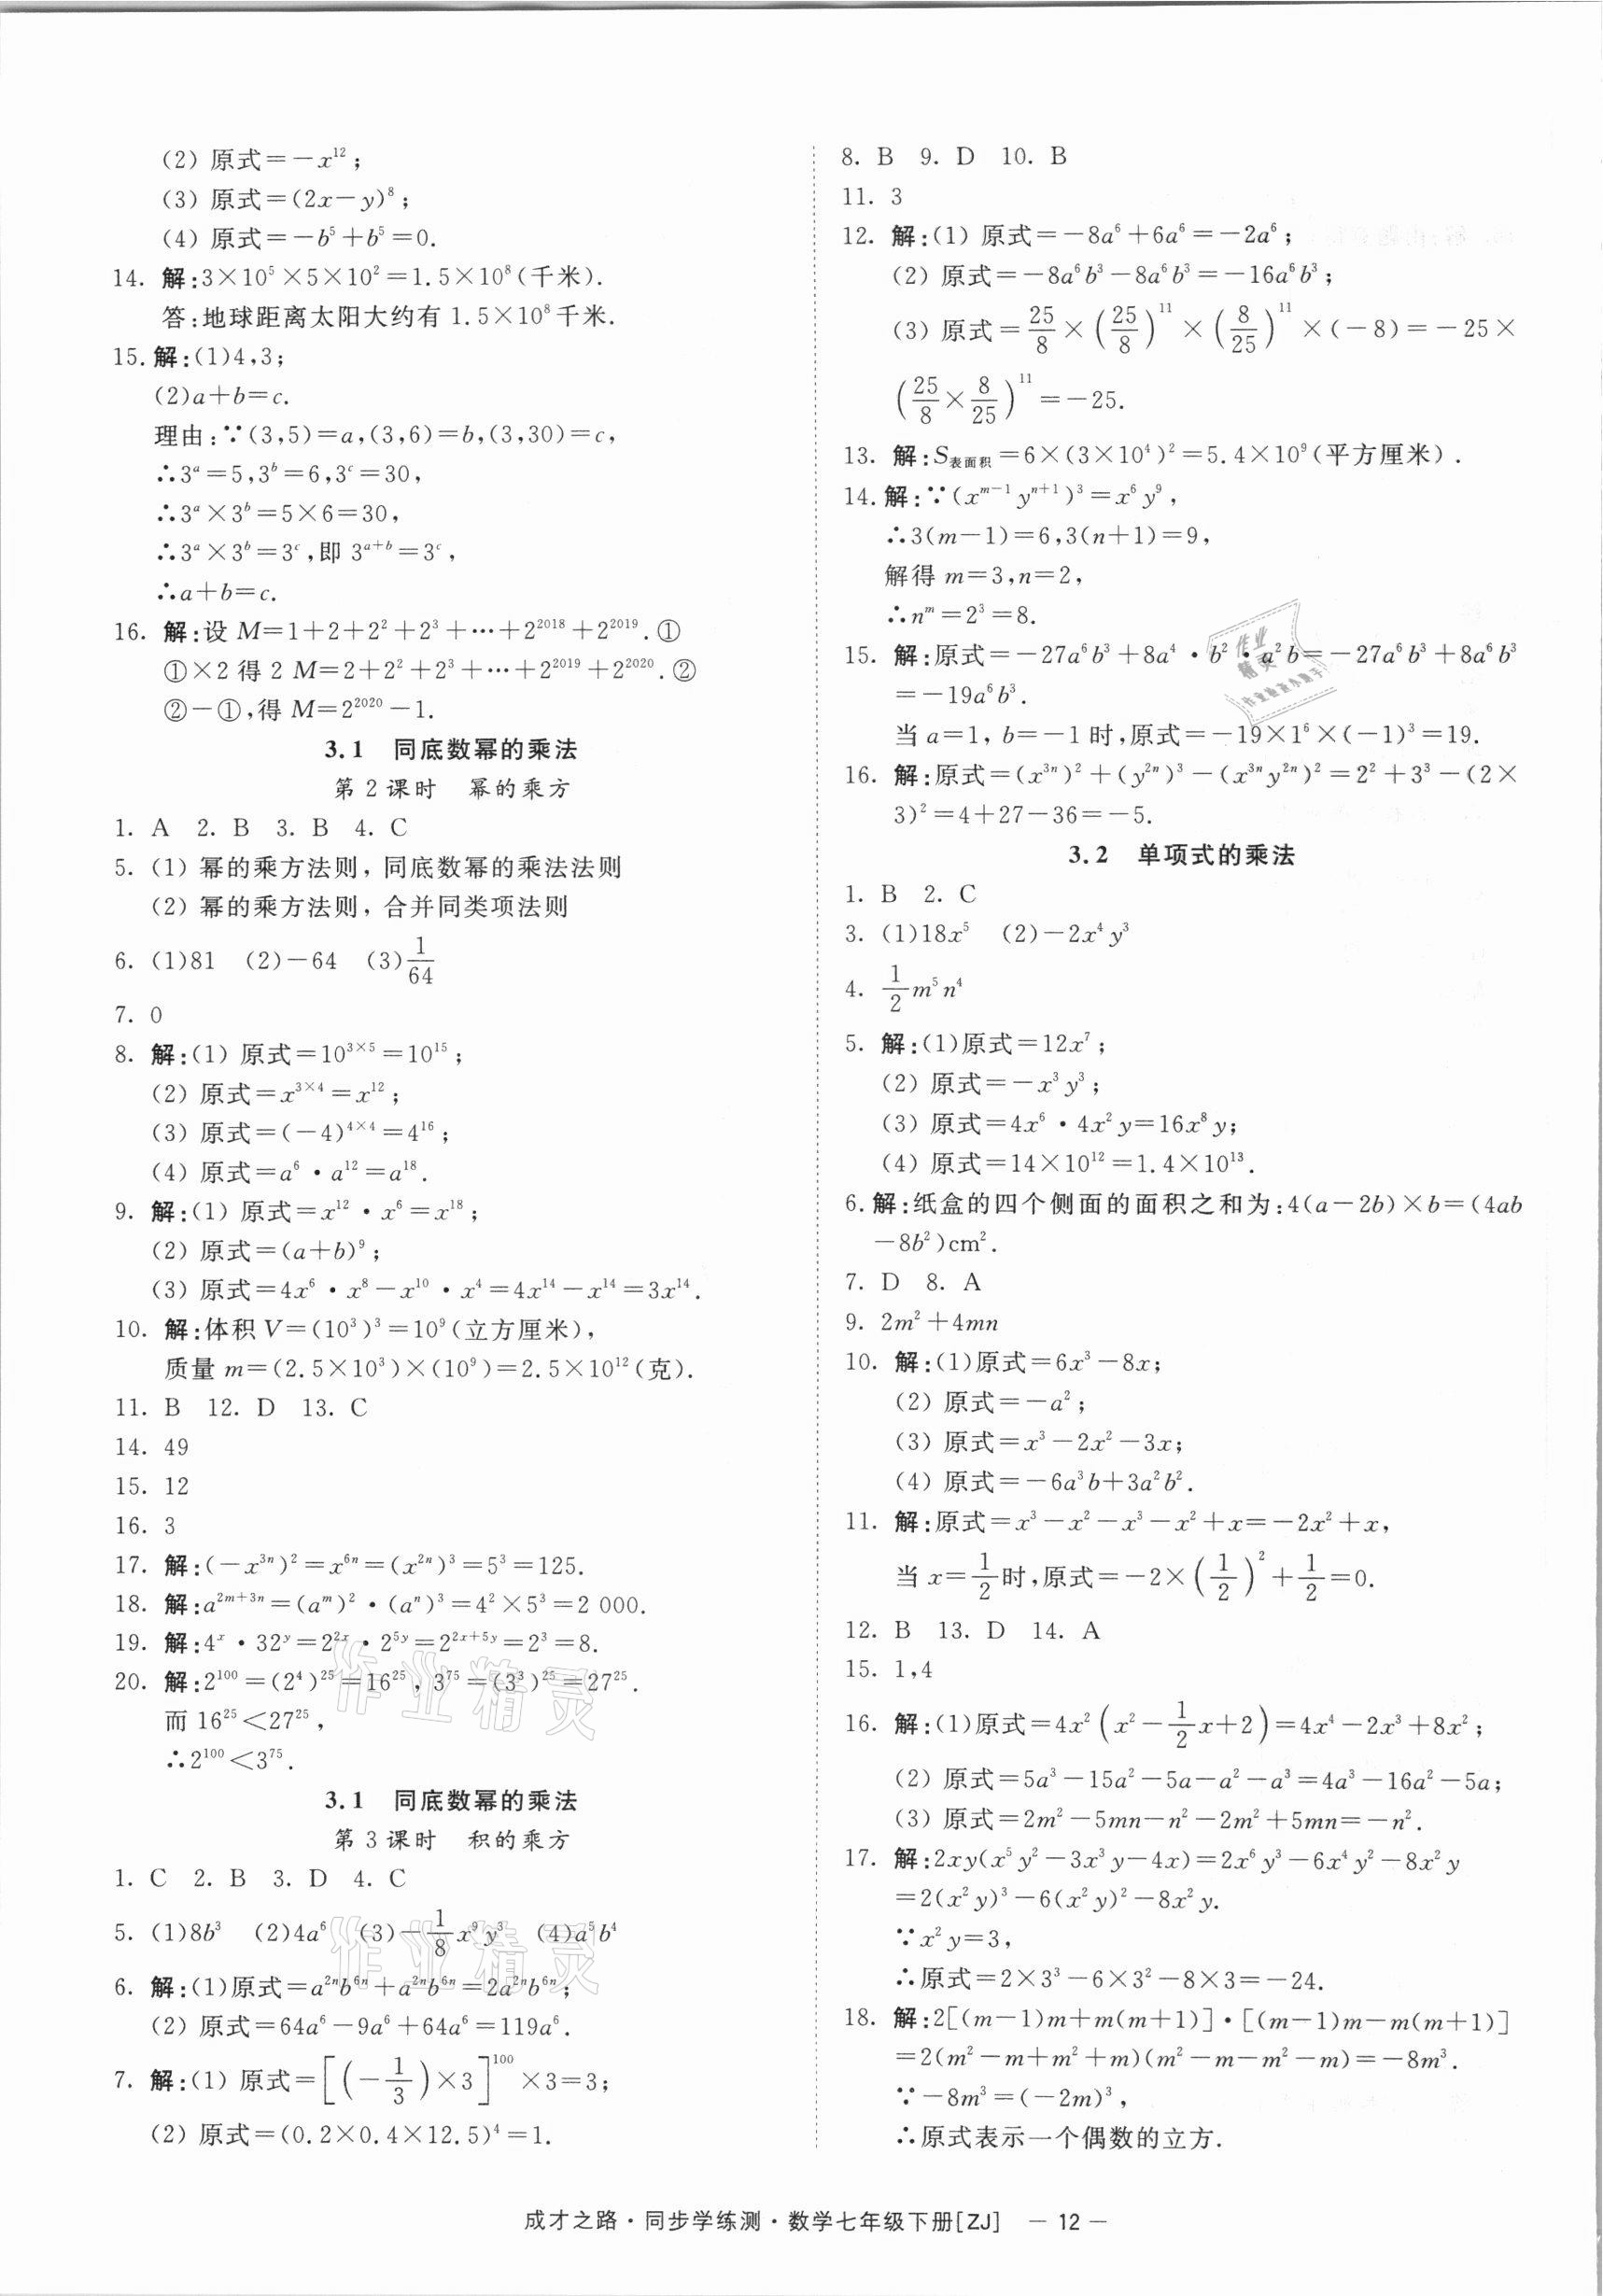 (2) 原式=－x¹²；
(3) 原式=(2x－y)⁸；
(4) 原式=－b⁵＋b⁵=0.
14. 解:3×10⁵×5×10²=1.5×10⁸(千米).
答:地球距离太阳大约有 1.5×10⁸千米.
15. 解:(1)4,3;
(2)a＋b=c.
理由:∵(3,5)=a,(3,6)=b,(3,30)=c,
∴3ᵃ=5,3ᵇ=6,3ᶜ=30,
∴3ᵃ×3ᵇ=5×6=30,
∴3ᵃ×3ᵇ=3ᶜ,即 3ᵃ⁺ᵇ=3ᶜ,
∴a＋b=c.
16. 解:设 M=1＋2＋2²＋2³＋…＋2²⁰¹⁸＋2²⁰¹⁹.①
①×2 得 2 M=2＋2²＋2³＋…＋2²⁰¹⁹＋2²⁰²⁰.②
②－①,得 M=2²⁰²⁰－1.
3.1 同底数幂的乘法
第 2 课时 幂的乘方
1. A 2. B 3. B 4. C
5. (1) 幂的乘方法则，同底数幂的乘法法则
(2) 幂的乘方法则，合并同类项法则
6. (1)81 (2)－64 (3)1/64
7. 0
8. 解:(1) 原式=10³ˣ⁵=10¹⁵；
(2) 原式=x^(3×4)=x¹²；
(3) 原式=(－4)^(4×4)=4¹⁶；
(4) 原式=a⁶·a¹²=a¹⁸.
9. 解:(1) 原式=x¹²·x⁶=x¹⁸；
(2) 原式=(a＋b)⁹；
(3) 原式=4x⁶·x⁸－x¹⁰·x⁴=4x¹⁴－x¹⁴=3x¹⁴.
10. 解:体积 V=(10³)³=10⁹(立方厘米),
质量 m=(2.5×10³)×(10⁹)=2.5×10¹²(克).
11. B 12. D 13. C
14. 49
15. 12
16. 3
17. 解:(－x³ⁿ)²=x⁶ⁿ=(x²ⁿ)³=5³=125.
18. 解:a^(2m+3n)=(aᵐ)²·(aⁿ)³=4²×5³=2 000.
19. 解:4ˣ·32ʸ=2²ˣ·2⁵ʸ=2^(2x+5y)=2³=8.
20. 解:2¹⁰⁰=(2⁴)²⁵=16²⁵,3⁷⁵=(3³)²⁵=27²⁵.
而 16²⁵＜27²⁵,
∴2¹⁰⁰＜3⁷⁵.
3.1 同底数幂的乘法
第 3 课时 积的乘方
1. C 2. B 3. D 4. C
5. (1)8b³ (2)4a⁶ (3)－1/8x⁹y³ (4)a⁵b⁴
6. 解:(1)原式=a²ⁿb⁶ⁿ＋a²ⁿb⁶ⁿ=2a²ⁿb⁶ⁿ;
(2) 原式=64a⁶－9a⁶＋64a⁶=119a⁶.
7. 解:(1) 原式=[(－1/3)×3]¹⁰⁰×3=3;
(2) 原式=(0.2×0.4×12.5)⁴=1.
8. B 9. D 10. B
11. 3
12. 解:(1) 原式=－8a⁶＋6a⁶=－2a⁶；
(2) 原式=－8a⁶b³－8a⁶b³=－16a⁶b³；
(3) 原式=25/8×(25/8)¹¹×(8/25)¹¹×(－8)=－25×
(25/8×8/25)¹¹=－25.
13. 解:S表面积=6×(3×10⁴)²=5.4×10⁹(平方厘米).
14. 解:∵(xᵐ⁻¹yⁿ⁺¹)³=x⁶y⁹,
∴3(m－1)=6,3(n＋1)=9,
解得 m=3,n=2,
∴nᵐ=2³=8.
15. 解:原式=－27a⁶b³＋8a⁴·b²·a²b=－27a⁶b³＋8a⁶b³
=－19a⁶b³.
当 a=1, b=－1 时,原式=－19×1⁶×(－1)³=19.
16. 解:原式=(x³ⁿ)²＋(y²ⁿ)³－(x³ⁿy²ⁿ)²=2²＋3³－(2×
3)²=4＋27－36=－5.
3.2 单项式的乘法
1. B 2. C
3. (1)18x⁵ (2)－2x⁴y³
4. 1/2m⁵n⁴
5. 解:(1)原式=12x⁷；
(2) 原式=－x³y³；
(3) 原式=4x⁶·4x²y=16x⁸y;
(4) 原式=14×10¹²=1.4×10¹³.
6. 解:纸盒的四个侧面的面积之和为:4(a－2b)×b=(4ab
－8b²)cm².
7. D 8. A
9. 2m²＋4mn
10. 解:(1)原式=6x³－8x;
(2) 原式=－a²；
(3) 原式=x³－2x²－3x;
(4) 原式=－6a³b＋3a²b².
11. 解:原式=x³－x²－x³－x²＋x=－2x²＋x,
当 x=1/2时,原式=－2×(1/2)²＋1/2=0.
12. B 13. D 14. A
15. 1,4
16. 解:(1)原式=4x²(x²－1/2x＋2)=4x⁴－2x³＋8x²；
(2) 原式=5a³－15a²－5a－a²－a³=4a³－16a²－5a;
(3) 原式=2m²－5mn－n²－2m²＋5mn=－n².
17. 解:2xy(x⁵y²－3x³y－4x)=2x⁶y³－6x⁴y²－8x²y
=2(x²y)³－6(x²y)²－8x²y.
∵x²y=3,
∴原式=2×3³－6×3²－8×3=－24.
18. 解:2[(m－1)m＋m(m＋1)]·[(m－1)m－m(m＋1)]
=2(m²－m＋m²＋m)(m²－m－m²－m)=－8m³.
∵－8m³=(－2m)³,
∴原式表示一个偶数的立方.
成才之路·同步学练测·数学七年级下册[ZJ] － 12 －
作业精灵
作业精灵
作业精灵